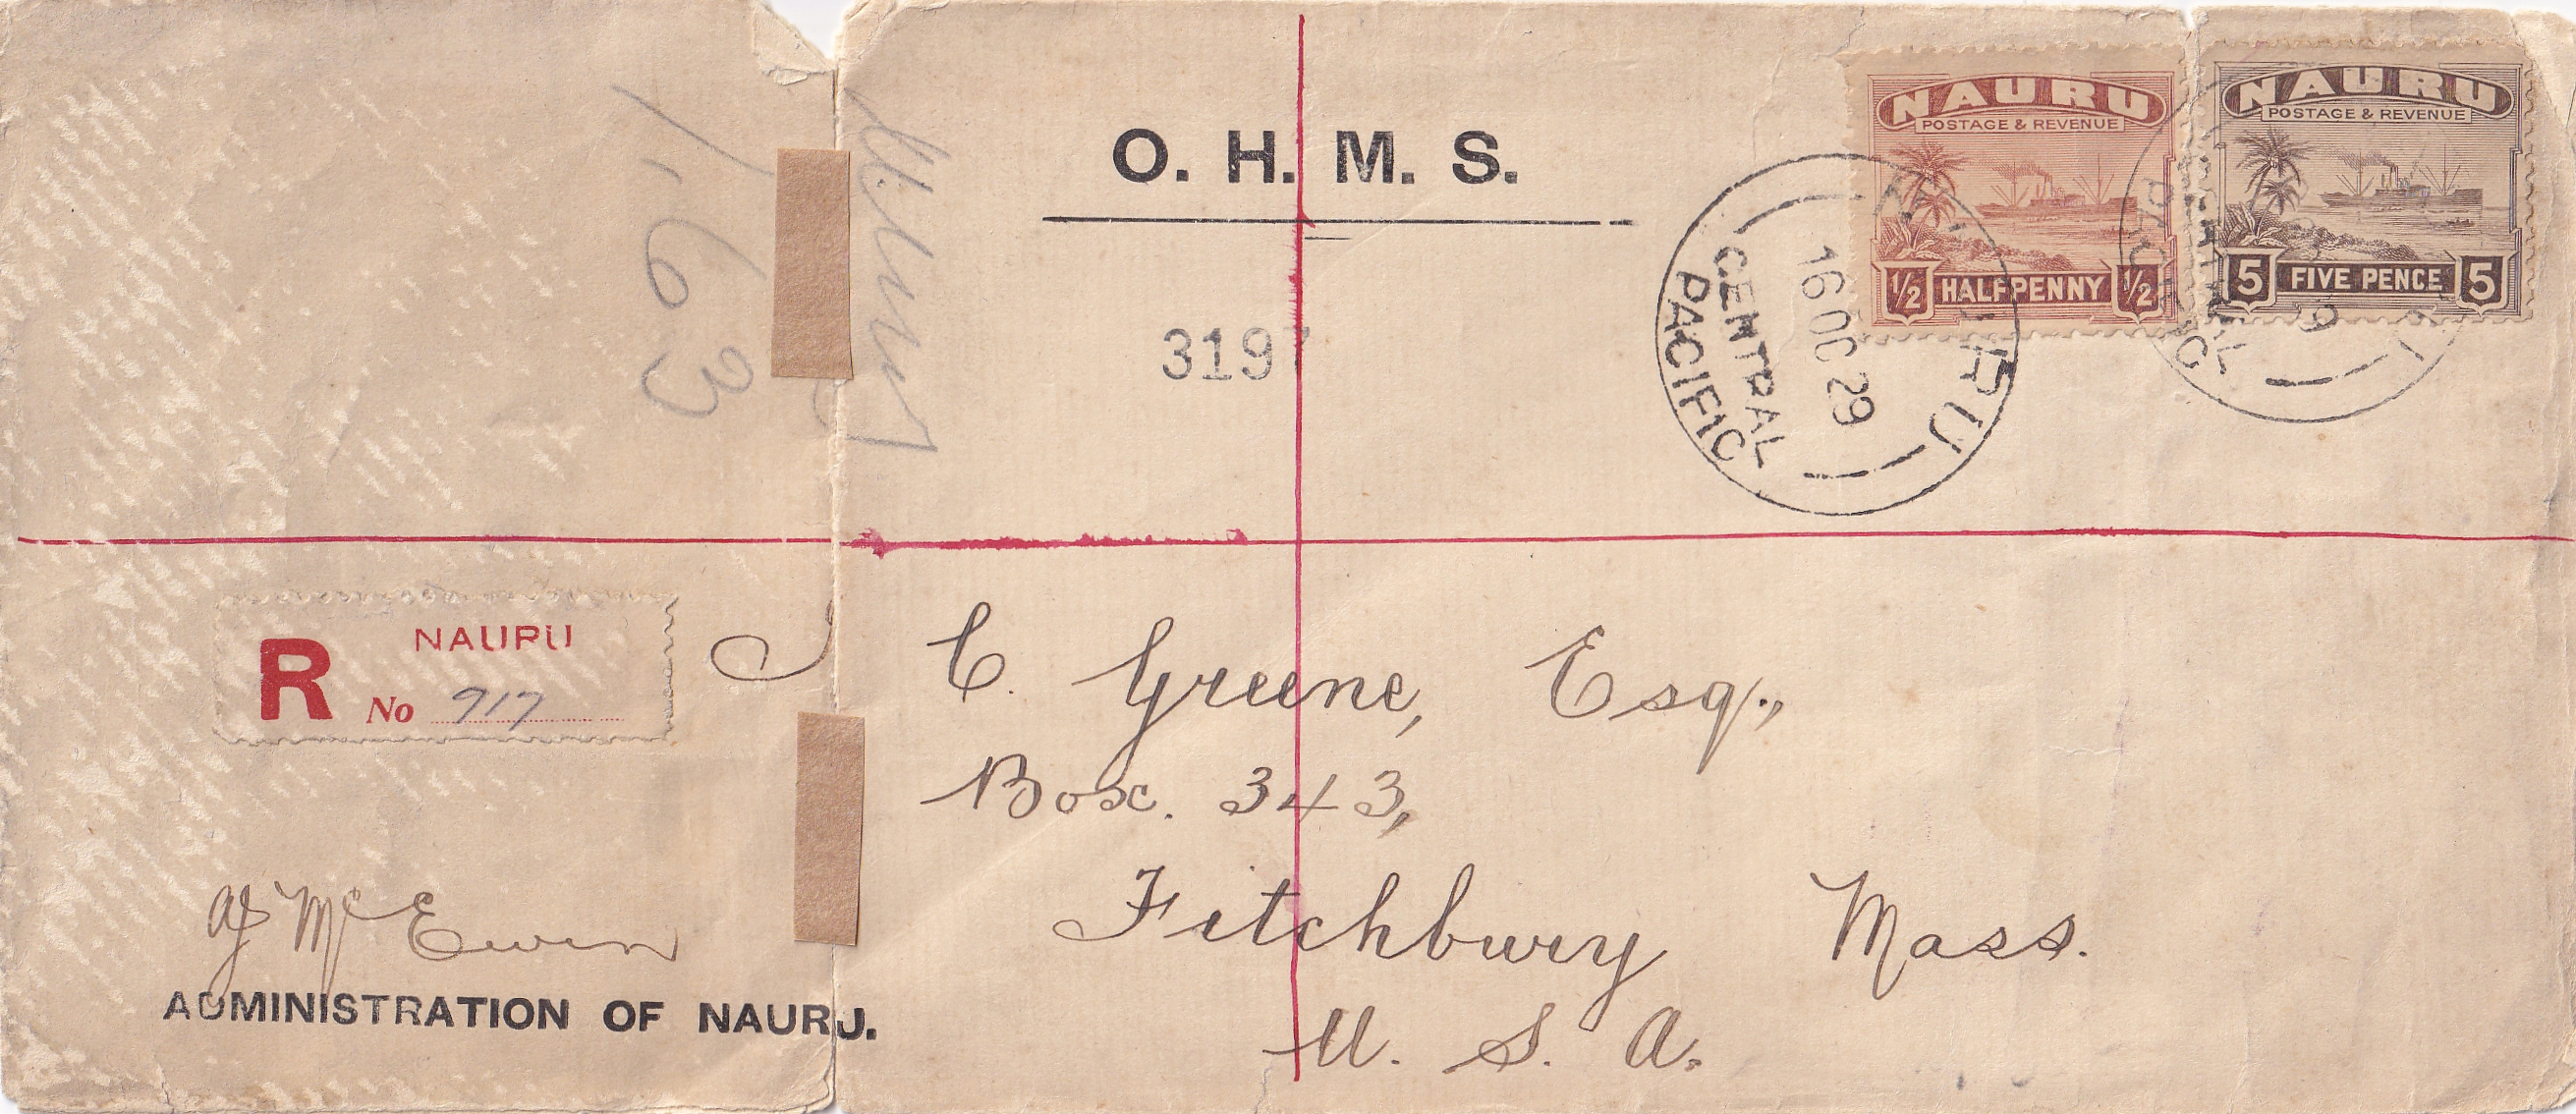 O. H. M. S.
NAURU
POSTAGE & REVENUE
½ HALFPENNY ½
NAURU
POSTAGE & REVENUE
5 FIVE PENCE 5
1.63
3197
CENTRAL
PACIFIC
16 OC 29
CENTRAL
PACIFIC
R
NAURU
No 917
C. Greene, Esq.,
Box. 343,
Fitchbury Mass.
U. S. A.
AJ McEwin
ADMINISTRATION OF NAURU.